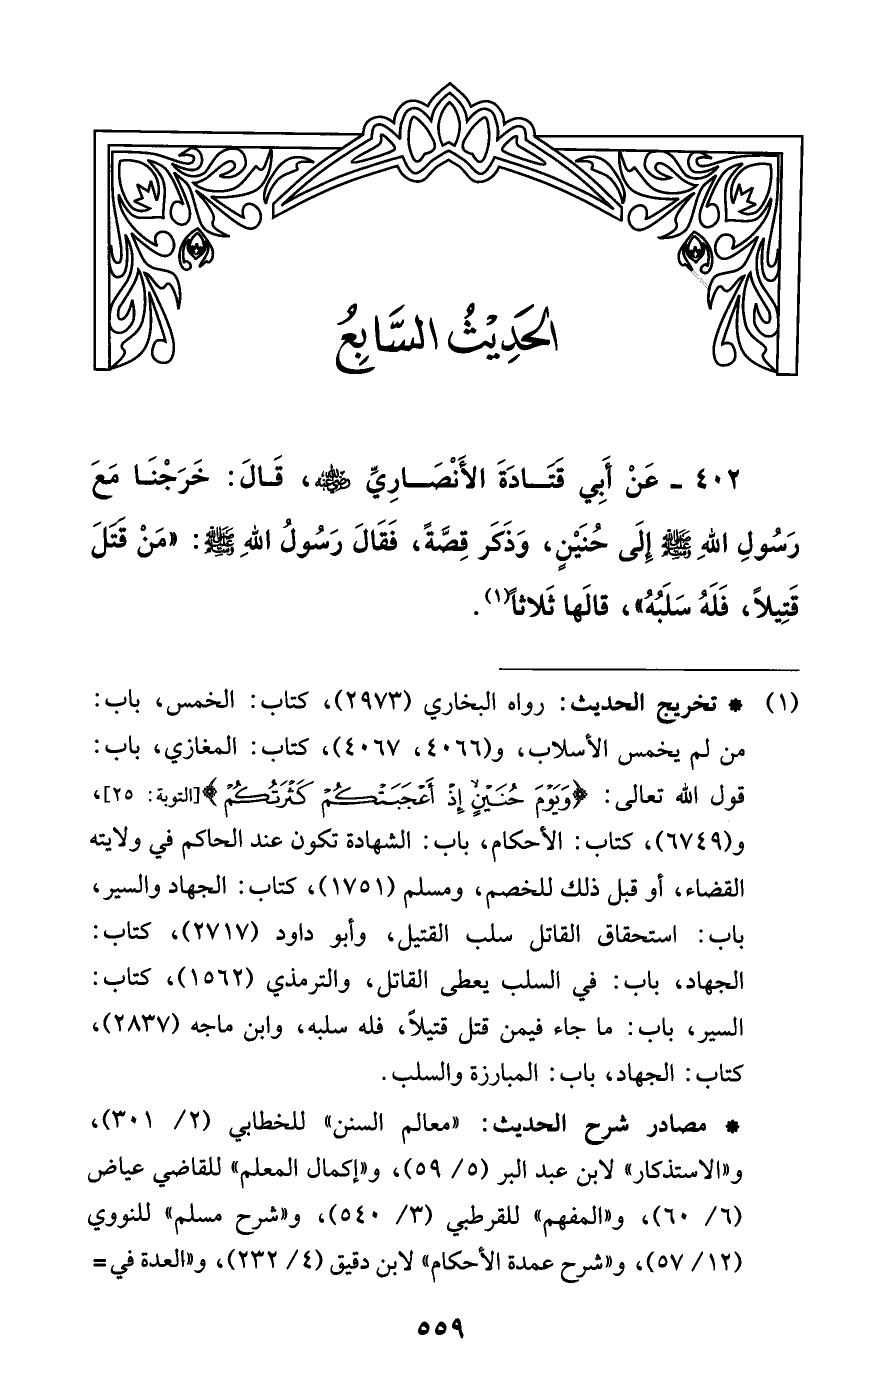 الحَدِيْثُ السَّابِعُ
٤٠٢ - عَنْ أَبِي قَتَادَةَ الأَنْصَارِيِّ ﵁، قَالَ: خَرَجْنَا مَعَ
رَسُولِ اللهِ ﷺ إِلَى حُنَيْنٍ، وَذَكَر قِصَّةً، فَقَالَ رَسُولُ اللهِ ﷺ: «مَنْ قَتَلَ
قَتِيلاً، فَلَهُ سَلَبُهُ»، قالَها ثَلاثاً(١).
(١) * تخريج الحديث: رواه البخاري (٢٩٧٣)، كتاب: الخمس، باب:
من لم يخمس الأسلاب، و(٤٠٦٦، ٤٠٦٧)، كتاب: المغازي، باب:
قول الله تعالى: ﴿وَيَوْمَ حُنَيْنٍ إِذْ أَعْجَبَتْكُمْ كَثْرَتُكُمْ﴾[التوبة: ٢٥]،
و(٦٧٤٩)، كتاب: الأحكام، باب: الشهادة تكون عند الحاكم في ولايته
القضاء، أو قبل ذلك للخصم، ومسلم (١٧٥١)، كتاب: الجهاد والسير،
باب: استحقاق القاتل سلب القتيل، وأبو داود (٢٧١٧)، كتاب:
الجهاد، باب: في السلب يعطى القاتل، والترمذي (١٥٦٢)، كتاب:
السير، باب: ما جاء فيمن قتل قتيلاً، فله سلبه، وابن ماجه (٢٨٣٧)،
كتاب: الجهاد، باب: المبارزة والسلب.
* مصادر شرح الحديث: «معالم السنن» للخطابي (٢/ ٣٠١)،
و«الاستذكار» لابن عبد البر (٥/ ٥٩)، و«إكمال المعلم» للقاضي عياض
(٦/ ٦٠)، و«المفهم» للقرطبي (٣/ ٥٤٠)، و«شرح مسلم» للنووي
(١٢/ ٥٧)، و«شرح عمدة الأحكام» لابن دقيق (٤/ ٢٣٢)، و«العدة في=
٥٥٩